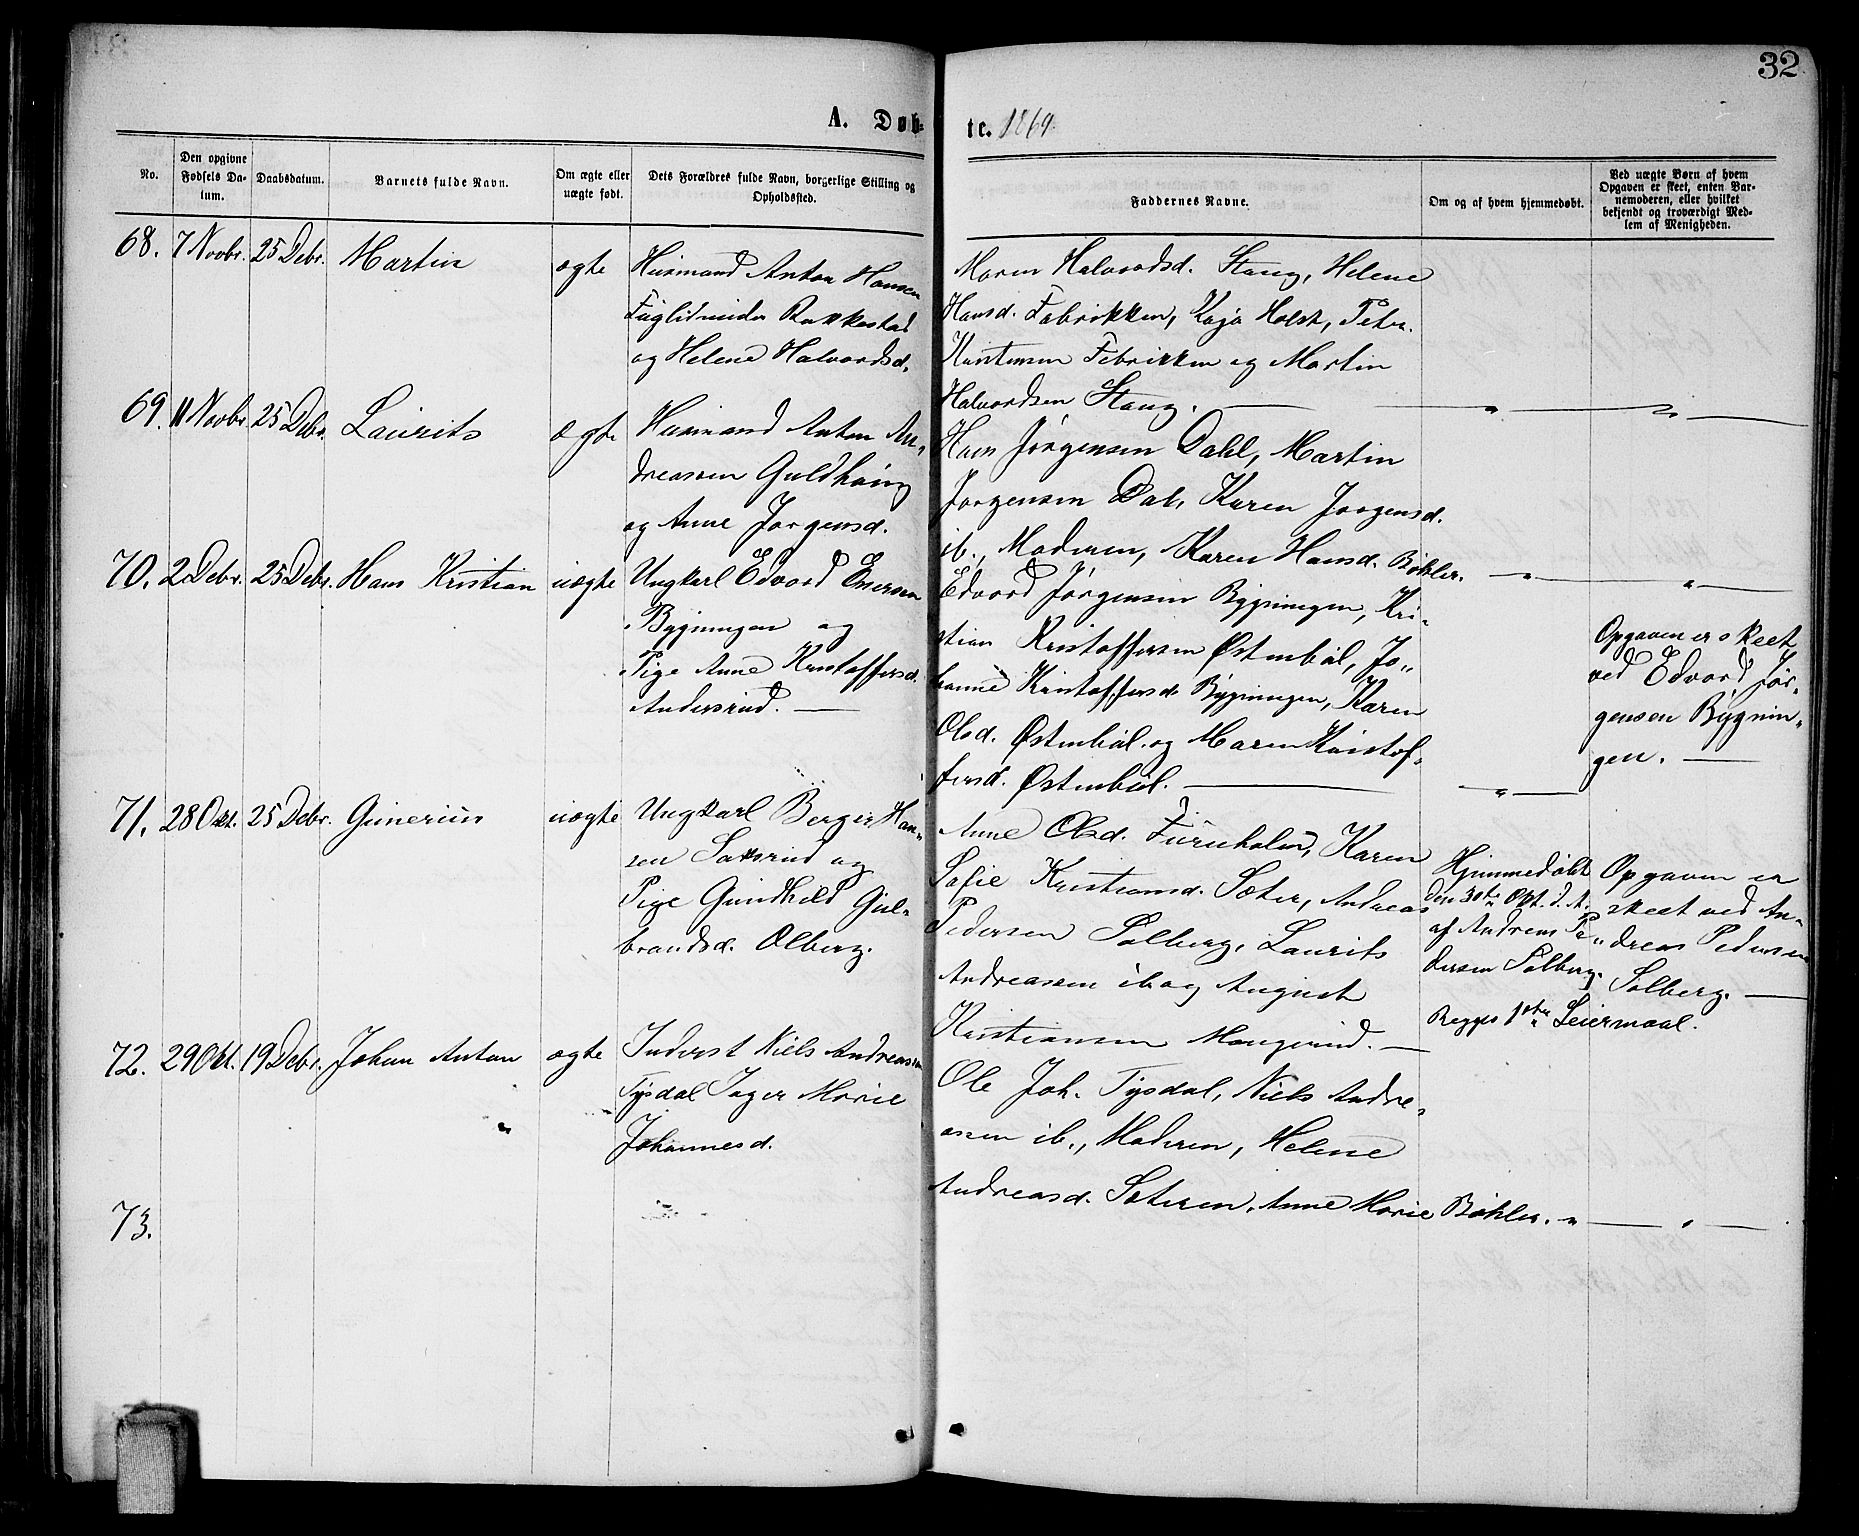 32
A. Døb-
te. 1869.
No.
Den opgivne Fødsels Da-tum.
Daabsdatum.
Barnets fulde Navn.
Om ægte eller uægte født.
Dets Forældres fulde Navn, borgerlige Stilling og Opholdssted.
Faddernes Navne.
Om og af hvem hjemmedøbt.
Ved uægte Børn af hvem Opgaven er skeet, enten Bar-nemoderen, eller hvilket bekjendt og troværdigt Med-lem af Menigheden.
68. 7 Novbr. 25 Debr. Martin ægte
Husmand Anton Hansen
Fuglivinden Rakkestad
og Helene Halvordsd.
Maren Halvordsd. Stang, Helene
Hansd. Fabrikken, Kaja Holst, Peter
Kristensen Fabrikken og Martin
Halvordsen Stang. — „ — „ —
69. 11 Novbr. 25 Debr. Laurits ægte
Husmand Anton An-
dreassen Guldhaug
og Anne Jørgensd.
Hans Jørgensen Dahl, Martin
Jørgensen Dal, Karen Jørgensd.
ib., Moderen, Karen Hansd. Bøhler. — „ — „ —
70. 2 Debr. 25 Debr. Hans Kristian uægte
Ungkarl Edvard Enersen
Bygningen og
Pige Anne Kristoffersd.
Andersrud. —
Edvard Jørgensen Bygningen, Kri-
stian Kristoffersen Østenbøl, Jo-
hanne Kristoffersd. Bygningen, Karen
Olsd. Østenbøl og Maren Kristof-
fersd. Østenbøl. — „ —
Opgaven er skeet
ved Edvard Jør-
gensen Bygnin-
gen. —
71. 28 Okt. 25 Debr. Gunerius uægte
Ungkarl Berger Han-
sen Saxrud og
Pige Gundhild Gul-
brandsd. Olberg.
Anne Olsd. Furuholm, Karen
Sofie Kristiansd. Sæter, Andreas
Pedersen Solberg, Laurits
Andreassen ib og August
Kristiansen Mangerud. —
Hjemmedøbt
den 30te Okt. d. A.
af Andreas Pe-
dersen Solberg.
Begges 1ste Leiermaal.
Opgaven er
skeet ved An-
dreas Pedersen
Solberg. —
72. 29 Okt. 19 Debr. Johan Anton ægte
Inderst Niels Andreasen
Tysdal Inger Marie
Johannesd.
Ole Joh. Tysdal, Niels Andre-
asen ib., Moderen, Helene
Andreasd. Sæteren, Anne Marie Bøhler. „ — „ —
73.